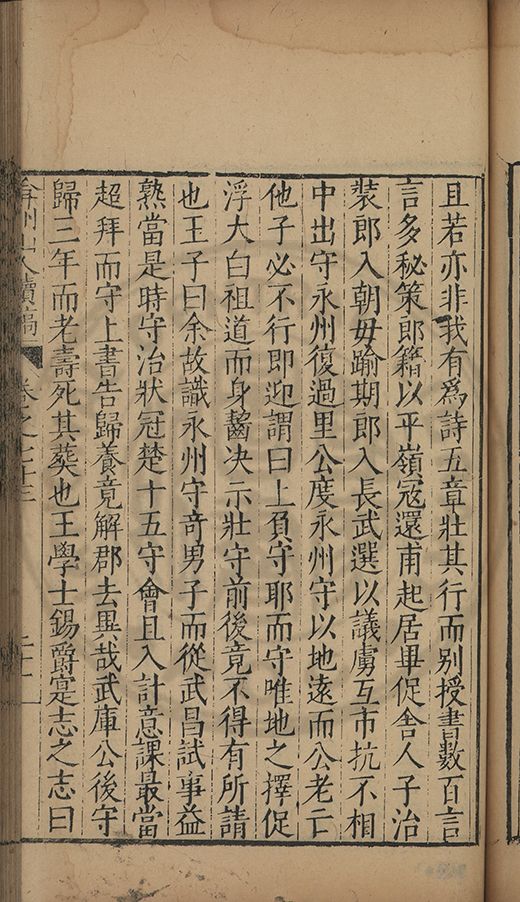 且若亦非我有爲詩五章壯其行而别授書數百言
言多秘策郎籍以平嶺冦還甫起居畢促舍人子治
裝郎入朝毋踰期郎入長武選以議虜互市抗不相
中出守永州復過里公度永州守以地遠而公老亡
他子必不行即迎謂曰上負守耶而守唯地之擇促
浮大白祖道而身齧决示壯守前後竟不得有所請
也王子曰余故識永州守奇男子而從武昌試事益
熟當是時守治狀冠楚十五守會且入計意課最當
超拜而守上書告歸養竟解郡去異哉武庫公後守
歸三年而老壽死其葬也王學士錫爵寔志之志曰
弇州山人續稿 卷之七十三